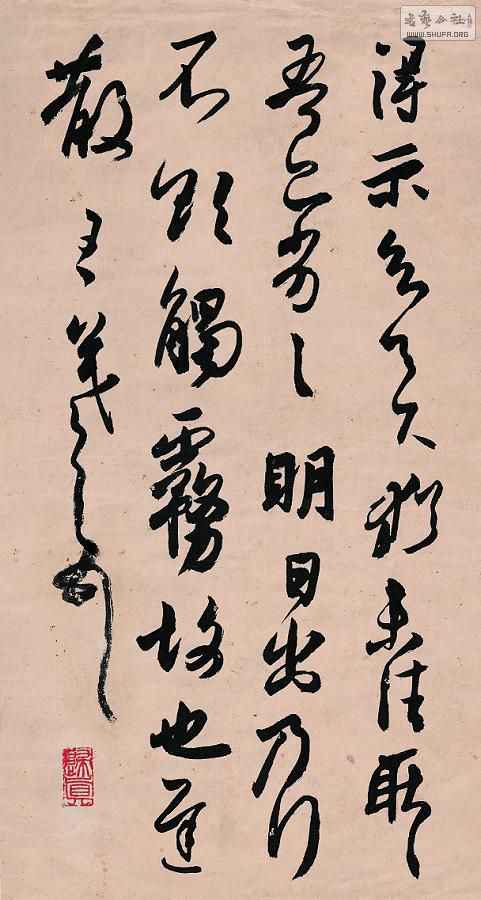 得示知足下猶未佳耿〻
吾亦劣〻明日出乃行
不欲觸霧故也遲
散 王羲之頓首
書藝公社
WWW.SHUFA.ORG